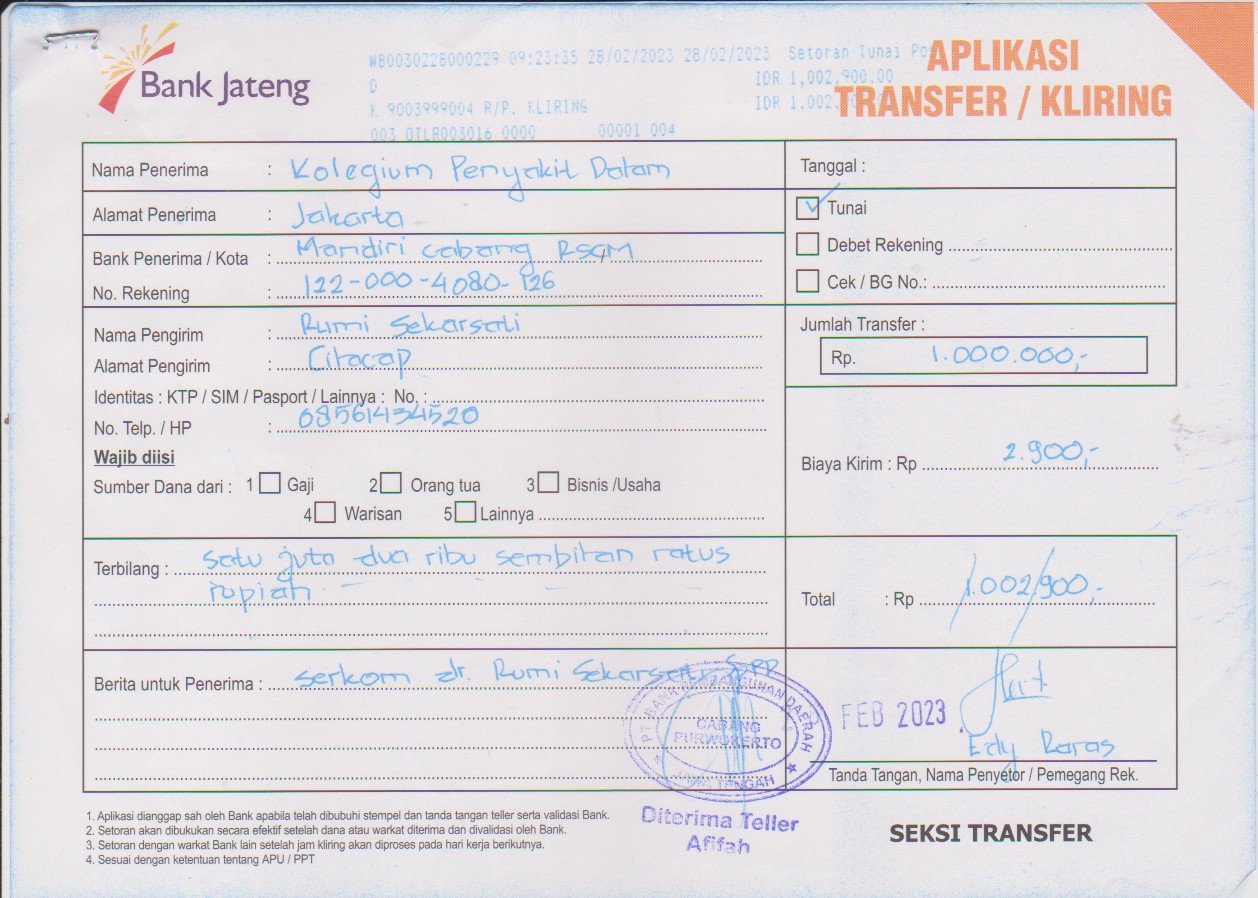 Bank Jateng
WB0030228000229 09:23:35 28/02/2023 28/02/2023 Setoran Tunai
D IDR 1,002,900.00
K 9003999004 R/P. KLIRING IDR 1,002,
003 OTLR003016 0000 00001 004
APLIKASI
TRANSFER / KLIRING
Nama Penerima : Kolegium Penyakit Dalam
Alamat Penerima : Jakarta
Bank Penerima / Kota : Mandiri cabang RSCM
No. Rekening : 122-000-4080-126
Nama Pengirim : Rumi Sekarsati
Alamat Pengirim : Cilacap
Identitas : KTP / SIM / Pasport / Lainnya : No. :
No. Telp. / HP : 08561434520
Wajib diisi
Sumber Dana dari : 1 Gaji 2 Orang tua 3 Bisnis /Usaha
4 Warisan 5 Lainnya
Tanggal :
Tunai
Debet Rekening
Cek / BG No.:
Jumlah Transfer :
Rp. 1.000.000,-
Biaya Kirim : Rp 2.900,-
Terbilang : satu juta dua ribu sembilan ratus
rupiah
Total : Rp 1.002.900,-
Berita untuk Penerima : serkom dr. Rumi Sekarsati
PT. BANK PEMBANGUNAN DAERAH
CABANG
PURWOKERTO
JAWA TENGAH
Diterima Teller
Afifah
FEB 2023
Edy Raras
Tanda Tangan, Nama Penyetor / Pemegang Rek.
1. Aplikasi dianggap sah oleh Bank apabila telah dibubuhi stempel dan tanda tangan teller serta validasi Bank.
2. Setoran akan dibukukan secara efektif setelah dana atau warkat diterima dan divalidasi oleh Bank.
3. Setoran dengan warkat Bank lain setelah jam kliring akan diproses pada hari kerja berikutnya.
4. Sesuai dengan ketentuan tentang APU / PPT
SEKSI TRANSFER